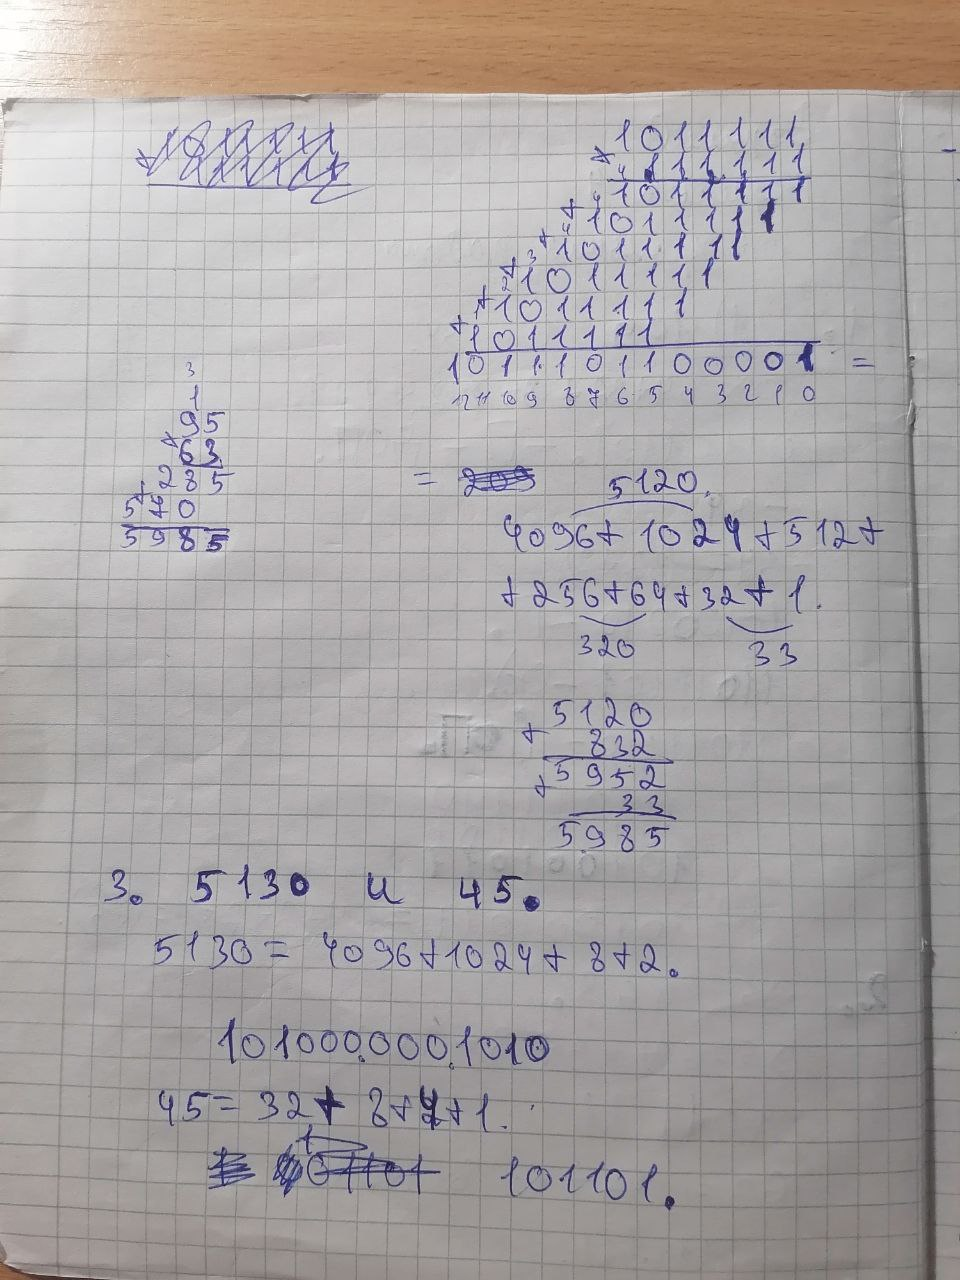 1011111
+ 111111
1011111
+ 1011111
+ 1011111
+ 1011111
+ 1011111
+ 1011111
1011101100001 =
12 11 10 9 8 7 6 5 4 3 2 1 0
3
1
95
+ 63
285
+ 570
5985
= 5120.
4096+ 1024 + 512 +
+ 256+64+32+ 1.
320 33
5120
+ 832
5952
+ 33
5985
3. 5130 и 45.
5130 = 4096+1024+ 8+2.
101000.000.1010
45= 32+ 8+4+1.
101101.